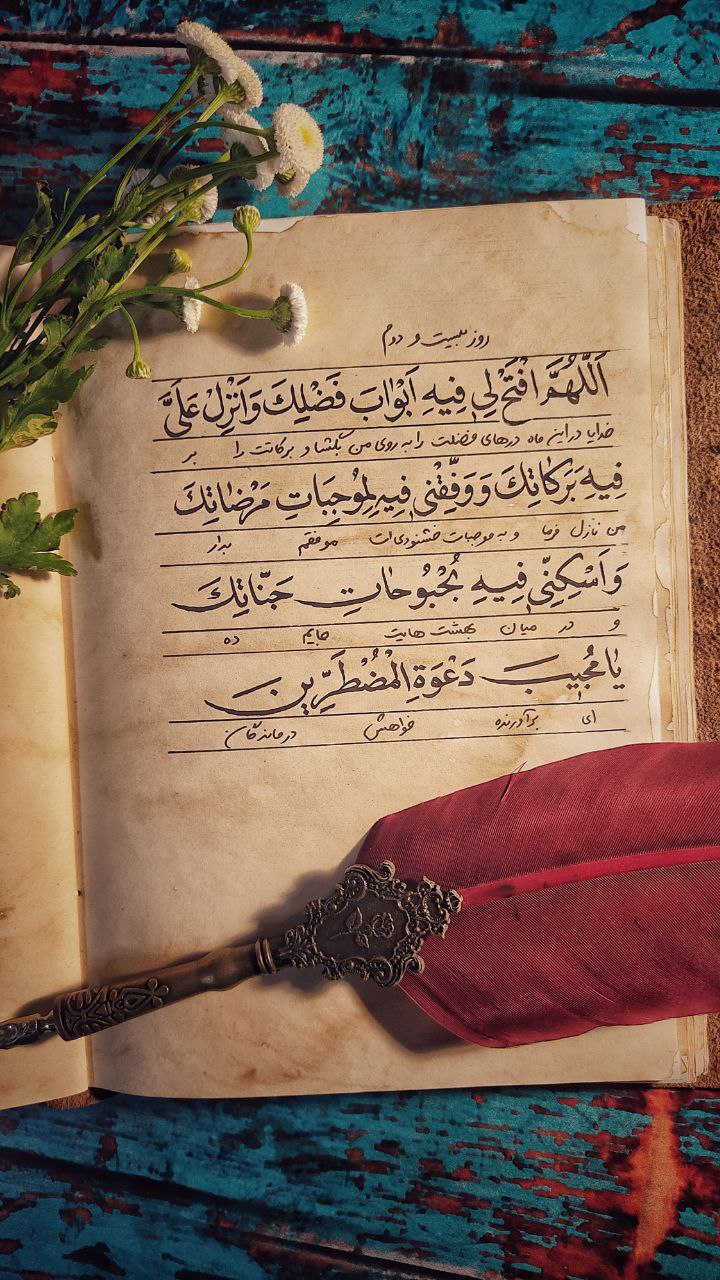 روز بیست و دوم
اَللّٰهُمَّ افْتَحْ لي فيهِ اَبْوٰابَ فَضْلِكَ وَاَنْزِلْ عَلَيَّ
خدایا در این ماه درهای فضلت را به روی من بگشا و برکاتت را بر
فيهِ بَرَكاتِكَ وَ وَفِّقْني فيهِ لِمُوجِباتِ مَرْضٰاتِكَ
من نازل فرما و به موجبات خشنودی‌ات موفقم بدار
وَ اَسْكِنّي فيهِ بُحْبُوحٰاتِ جَنّاتِكَ
و در میان بهشت هایت جایم ده
يٰا مُجيبَ دَعْوَةِ الْمُضْطَرّينَ
ای برآورنده خواهش درماندگان